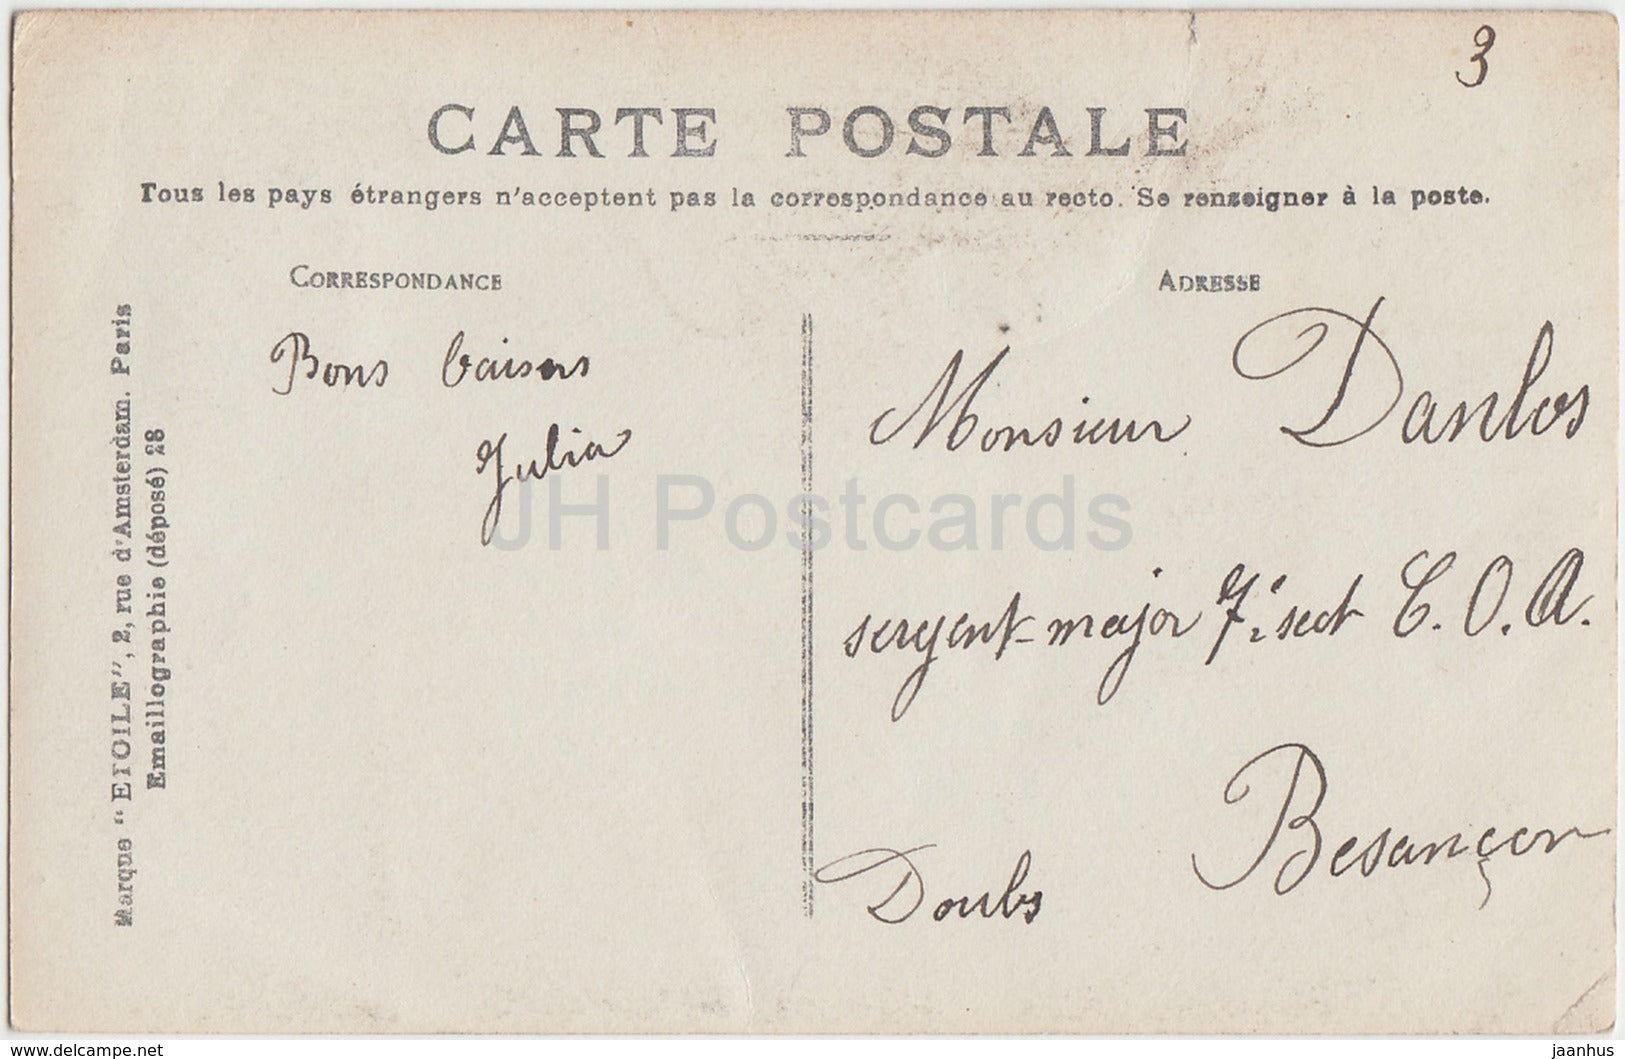 3
CARTE POSTALE
Tous les pays étrangers n'acceptent pas la correspondance au recto. Se renseigner à la poste.
CORRESPONDANCE
ADRESSE
Marque "ETOILE", 2, rue d'Amsterdam. Paris
Emaillographie (déposé) 28
Bons baisers
Julia
Monsieur Danlos
sergent-major 7e sect C.O.A.
Besançon
Doubs
JH Postcards
delcampe.net
jaanhus